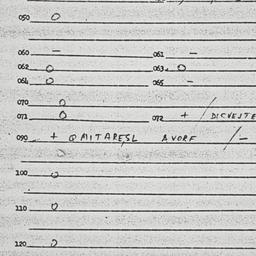 050 O
060 - 061 -
062 O 063 O
064 O 065 -
070 O
071 O 072 + / DICVESTE
090 + / -
100 O
110 O
120 O